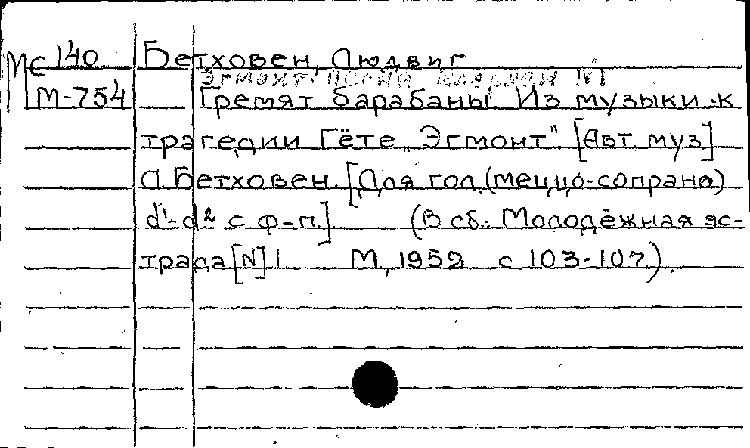 Мс 140 Бетховен, Людвиг
Эгмонт. Песня Клерхен №1
М-754 Гремят барабаны. Из музыки к
трагедии Гёте „Эгмонт". [Авт. муз]
Л. Бетховен. [Для гол. (меццо-сопрано)
d¹-d² с ф-п.] (В сб.: Молодёжная эс-
трада [N] 1 М., 1959 с 103-107.)